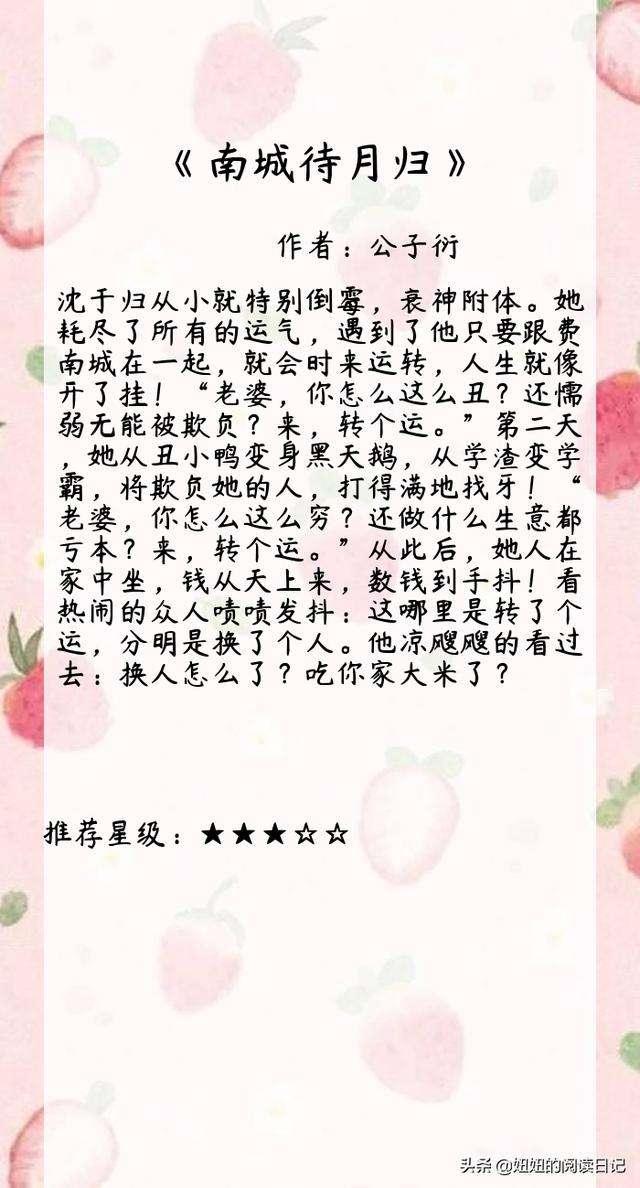 《南城待月归》
作者：公子衍
沈于归从小就特别倒霉，衰神附体。她
耗尽了所有的运气，遇到了他只要跟费
南城在一起，就会时来运转，人生就像
开了挂！“老婆，你怎么这么丑？还懦
弱无能被欺负？来，转个运。”第二天
，她从丑小鸭变身黑天鹅，从学渣变学
霸，将欺负她的人，打得满地找牙！“
老婆，你怎么这么穷？还做什么生意都
亏本？来，转个运。”从此后，她人在
家中坐，钱从天上来，数钱到手抖！看
热闹的众人啧啧发抖：这哪里是转了个
运，分明是换了个人。他凉飕飕的看过
去：换人怎么了？吃你家大米了？
推荐星级：★★★☆☆
头条 @妞妞的阅读日记